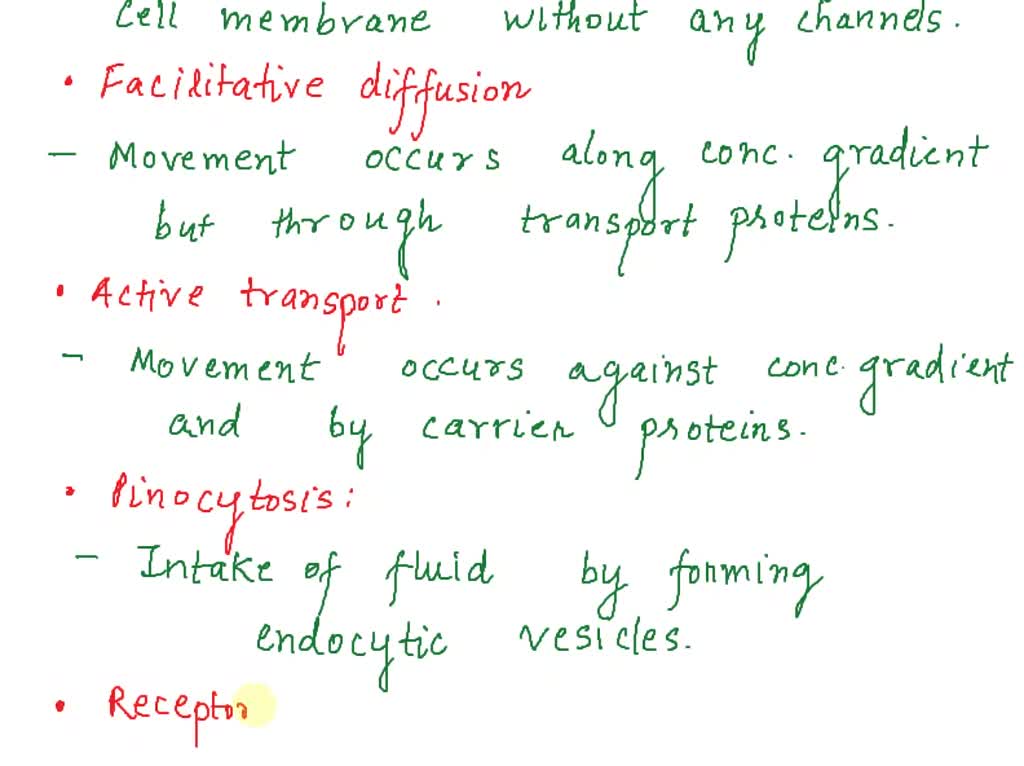 Cell membrane without any channels.
• Facilitative diffusion
- Movement occurs along conc. gradient
but through transport proteins.
• Active transport.
- Movement occurs against conc. gradient
and by carrier proteins.
• Pinocytosis:
- Intake of fluid by forming
endocytic vesicles.
• Receptor